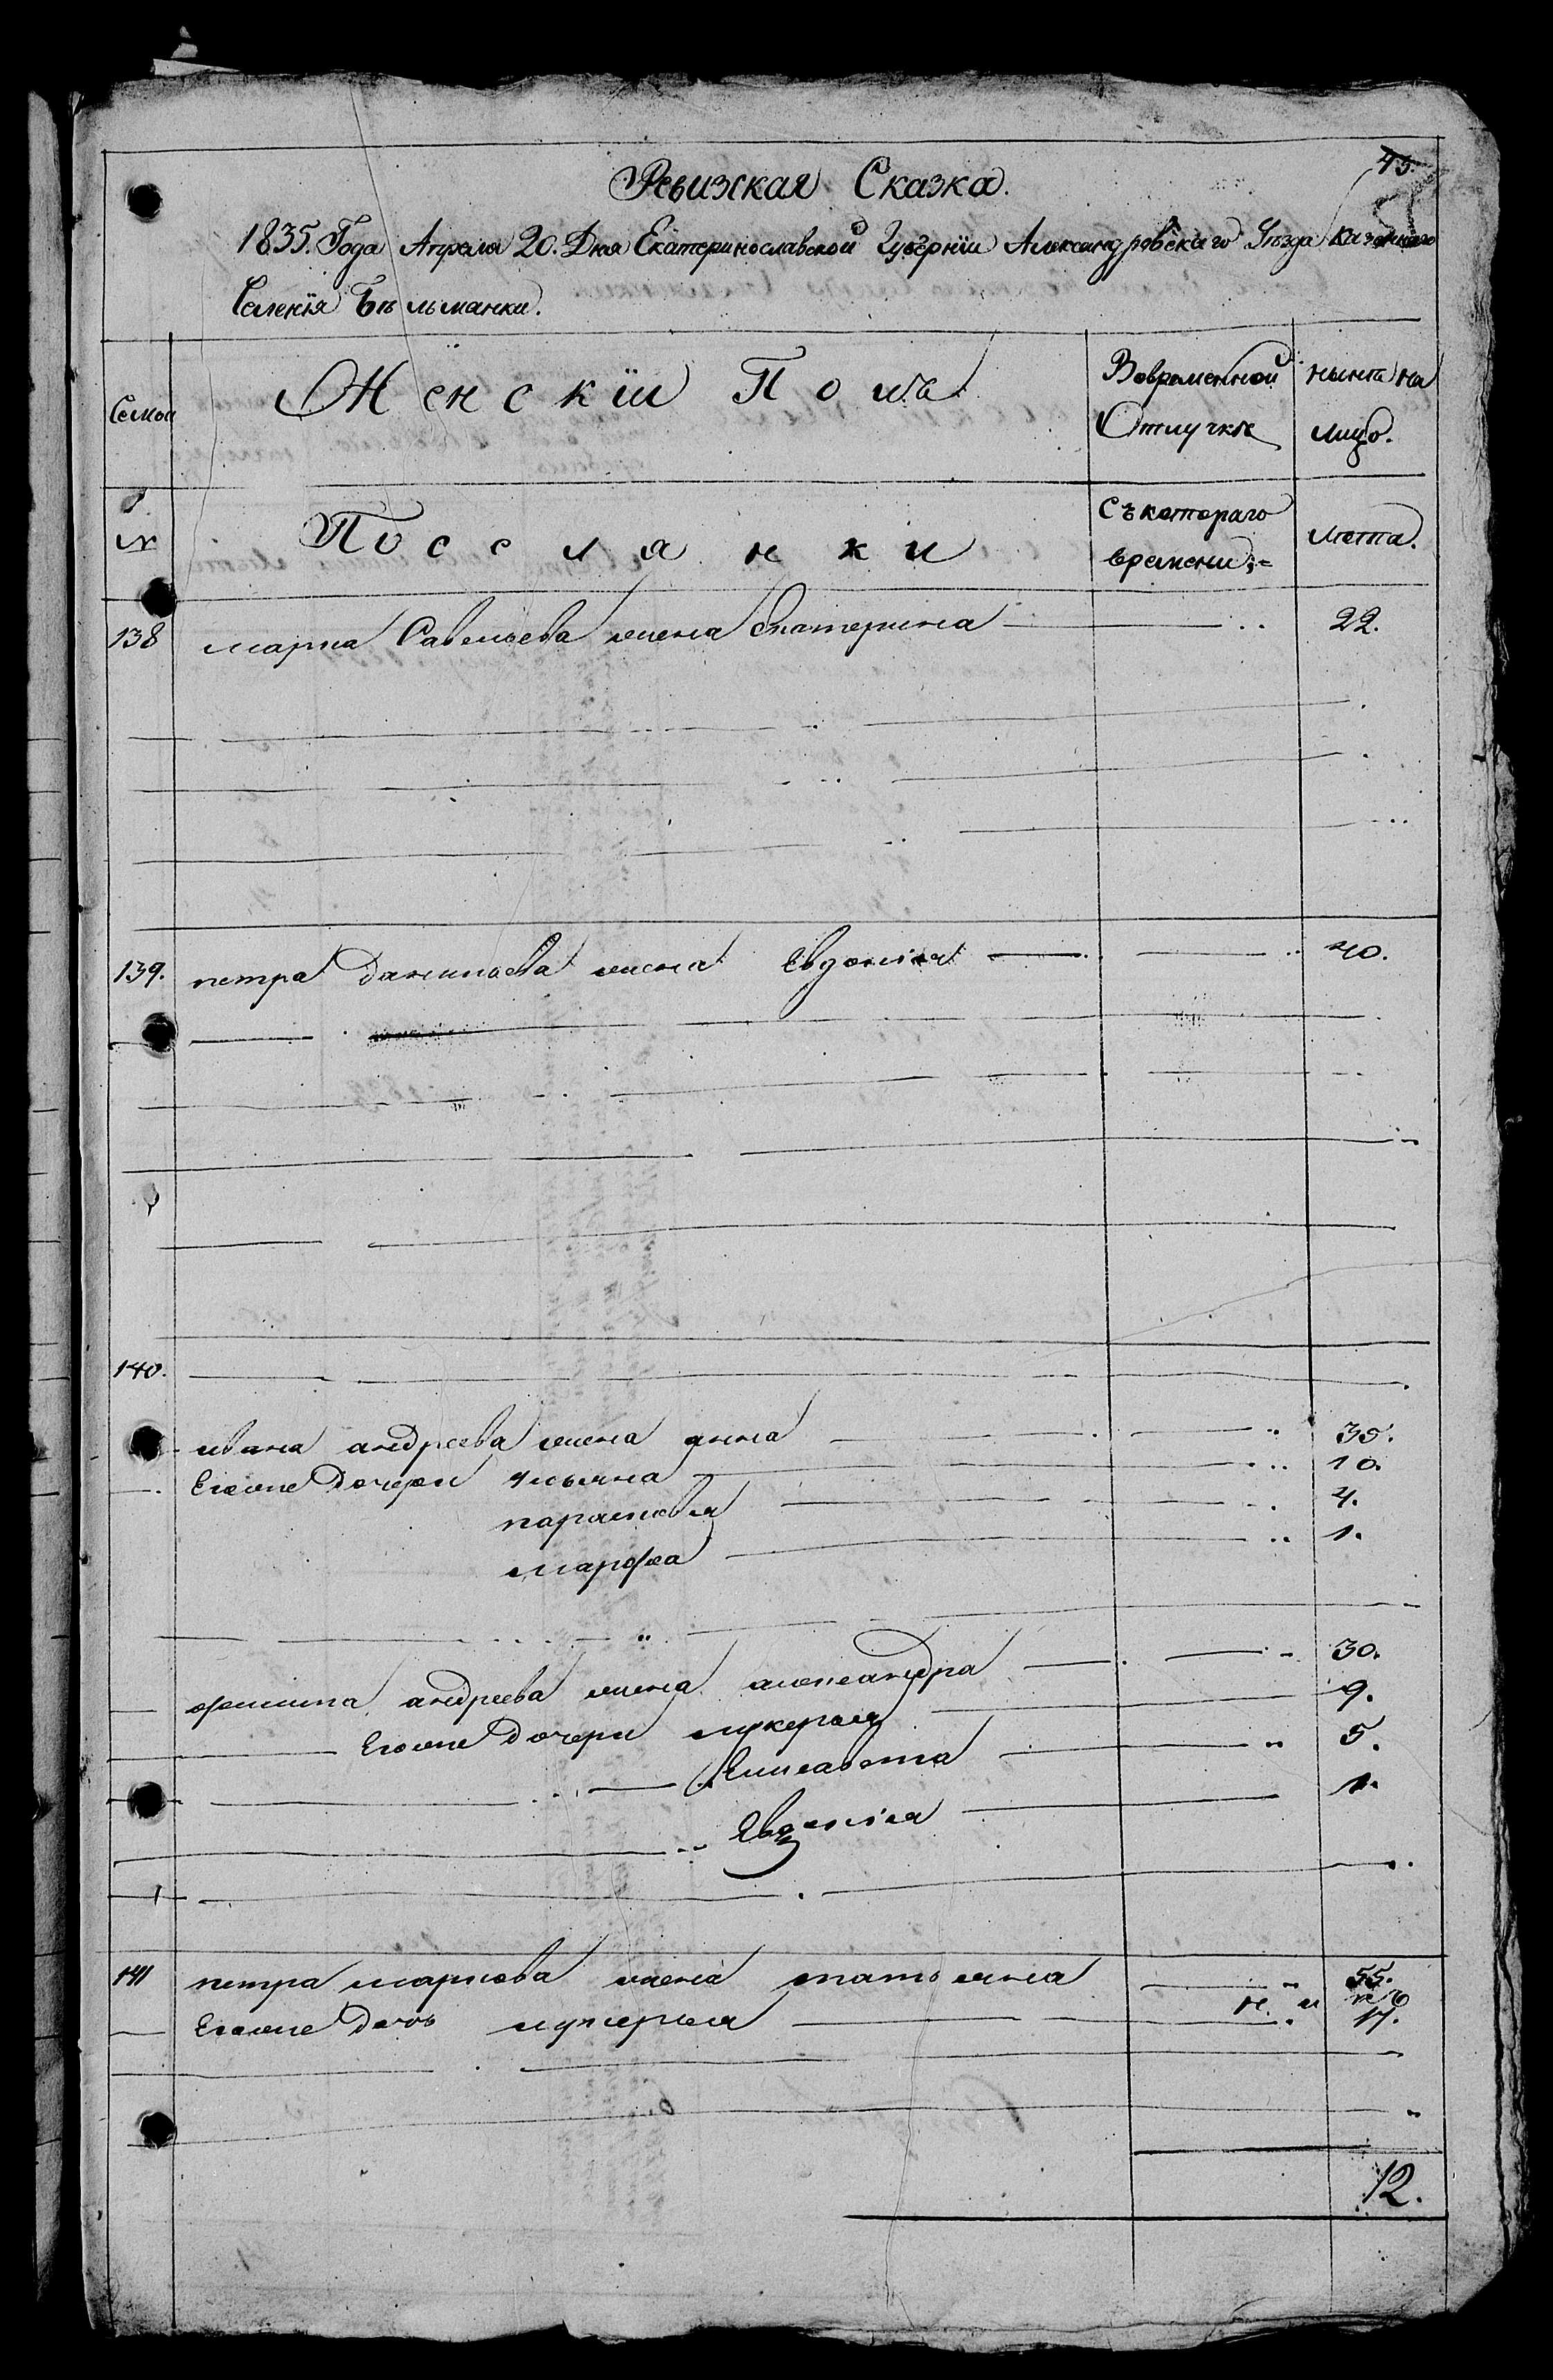 45.
Ревизкая Сказка.
1835. Года Апреля 20. Дня Екатеринославской Губернїи Александровскаго Уѣзда Казеннаго
Селенїя Бѣльманки.
Семьи
Женскїи Полъ
Вовременной Отлучкѣ
нынѣ на лицо.
№
Поселянки
Съкотораго времени
Лета.
138 марка Савельева жена Екатерина 22.
139. петра данильева жена Евдокія 40.
140.
ивана андреева жена анна 35.
Егоже Дочери ульяна 10.
парасковья 4.
марфа 1.
филипа андреева жена александра 30.
Егоже дочери лукерья 9.
Елисавета 5.
Евдокія 1.
141 петра маркова жена татьяна 55.
Егоже дочь лукерья 17.
12.